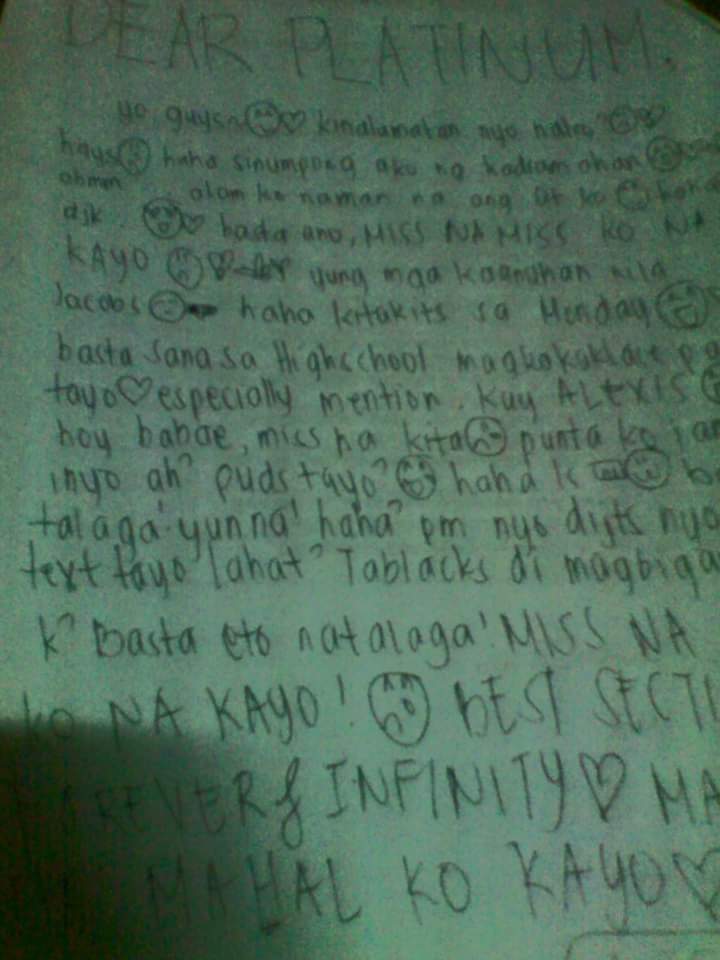 DEAR PLATINUM.
yo guysn kinalamatan nyo nato?
hays haha sinumpong ako ng kadramahan
ahmm alam ko naman na ang ko
djk. basta ano, MISS NA MISS KO NA
KAYO yung mga kaanuhan nila
Jacobs haha kitakits sa Monday
basta sana sa Highschool magkakaklase pa
tayo especially mention. kay ALEXIS
hoy babae, miss na kita punta ko jan
inyo ah? puds tayo? haha k
talaga yun na! haha? pm nyo digits nyo
text tayo lahat? Tablacks di magbiga
k? Basta eto natalaga! MISS NA
ko NA KAYO! BEST SECTI
FOREVER & INFINITY MA
MAHAL KO KAYO